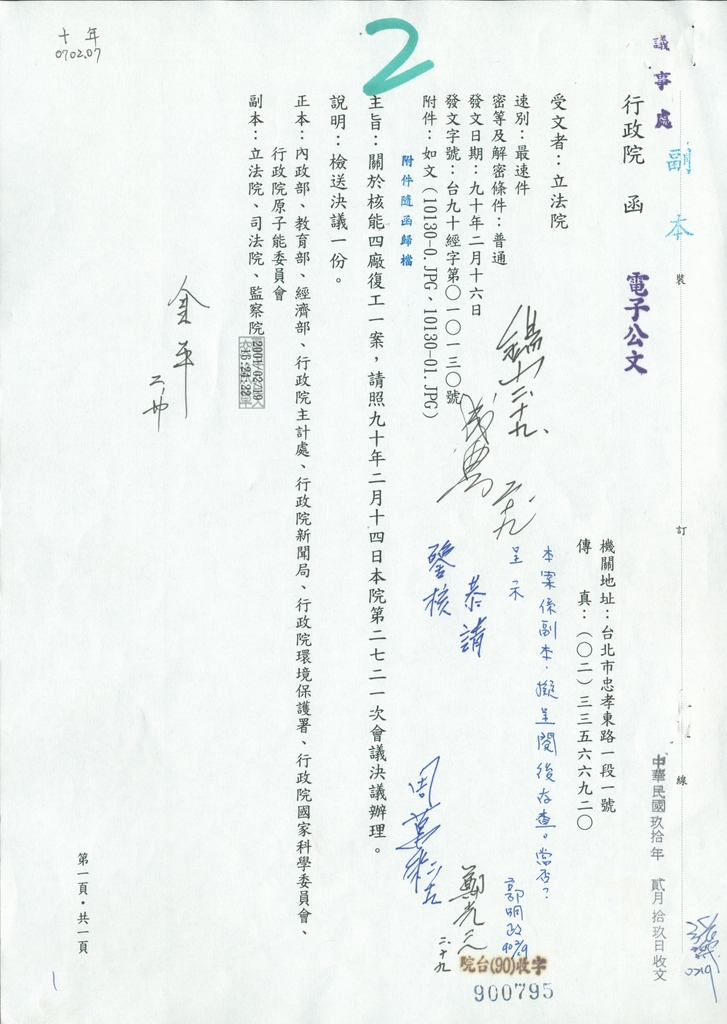 議事處
副本
行政院 函
電子公文
裝
訂
線
中華民國玖拾年 貳月 拾玖日收文
機關地址：台北市忠孝東路一段一號
傳 真：（〇二）三三五六六九二〇
受文者：立法院
速別：最速件
密等及解密條件：普通
發文日期：九十年二月十六日
發文字號：台九十經字第〇一〇一三〇號
附件：如文（10130-0.JPG、10130-01.JPG）
附件隨函歸檔
主旨：關於核能四廠復工一案，請照九十年二月十四日本院第二七二一次會議決議辦理。
說明：檢送決議一份。
正本：內政部、教育部、經濟部、行政院主計處、行政院新聞局、行政院環境保護署、行政院國家科學委員會、
行政院原子能委員會
副本：立法院、司法院、監察院
2001/02/19
本案係副本，擬呈閱後存查。當否？
呈示
郭明政
恭請
鑒核
二、十九
金平
院台(90)收字
900795
十年
0702.07
2
第一頁・共一頁